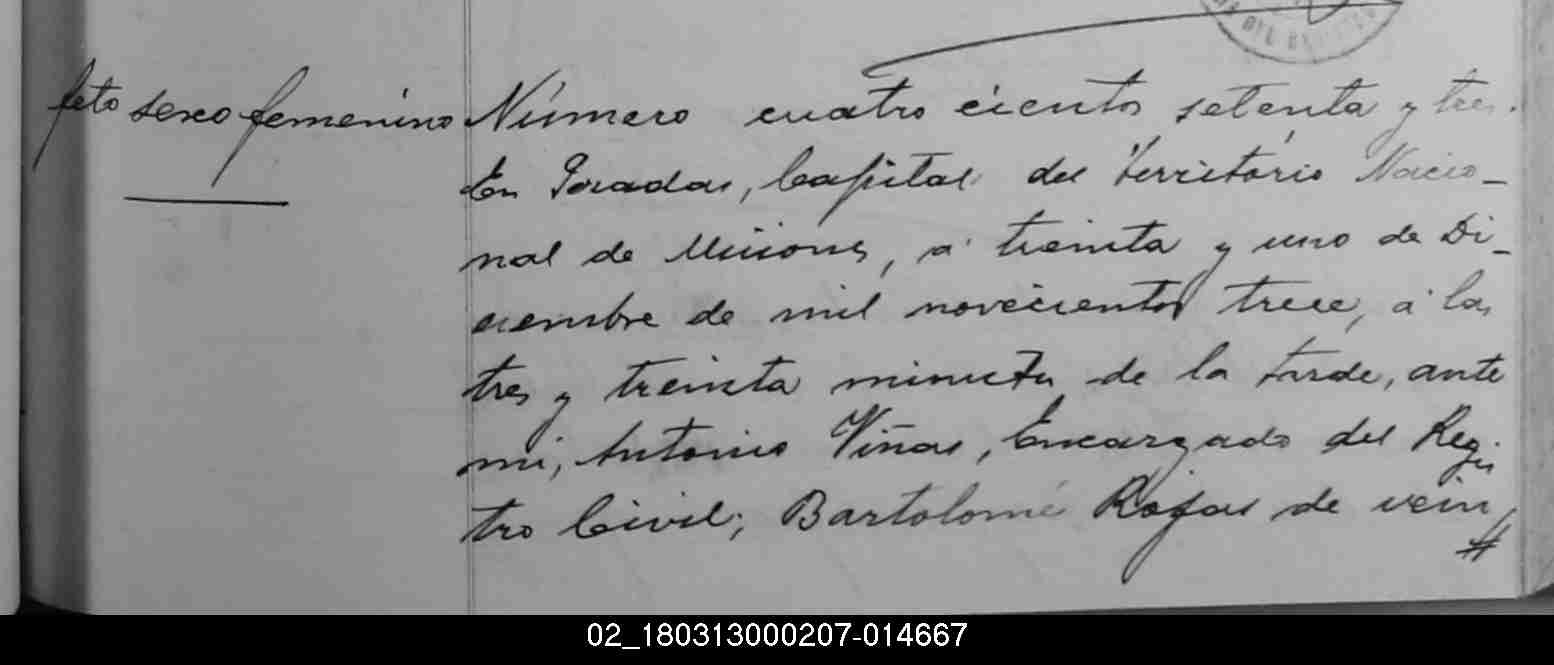 feto sexo femenino
Número cuatro cientos setenta y tres.
En Posadas, Capital del Território Nacio-
nal de Misiones, á treinta y uno de Di-
ciembre de mil novecientos trece, á las
tres y treinta minutos de la tarde, ante
mi, Antonio Viñas, Encargado del Regis
tro Civil; Bartolomé Rojas de vein
02_180313000207-014667